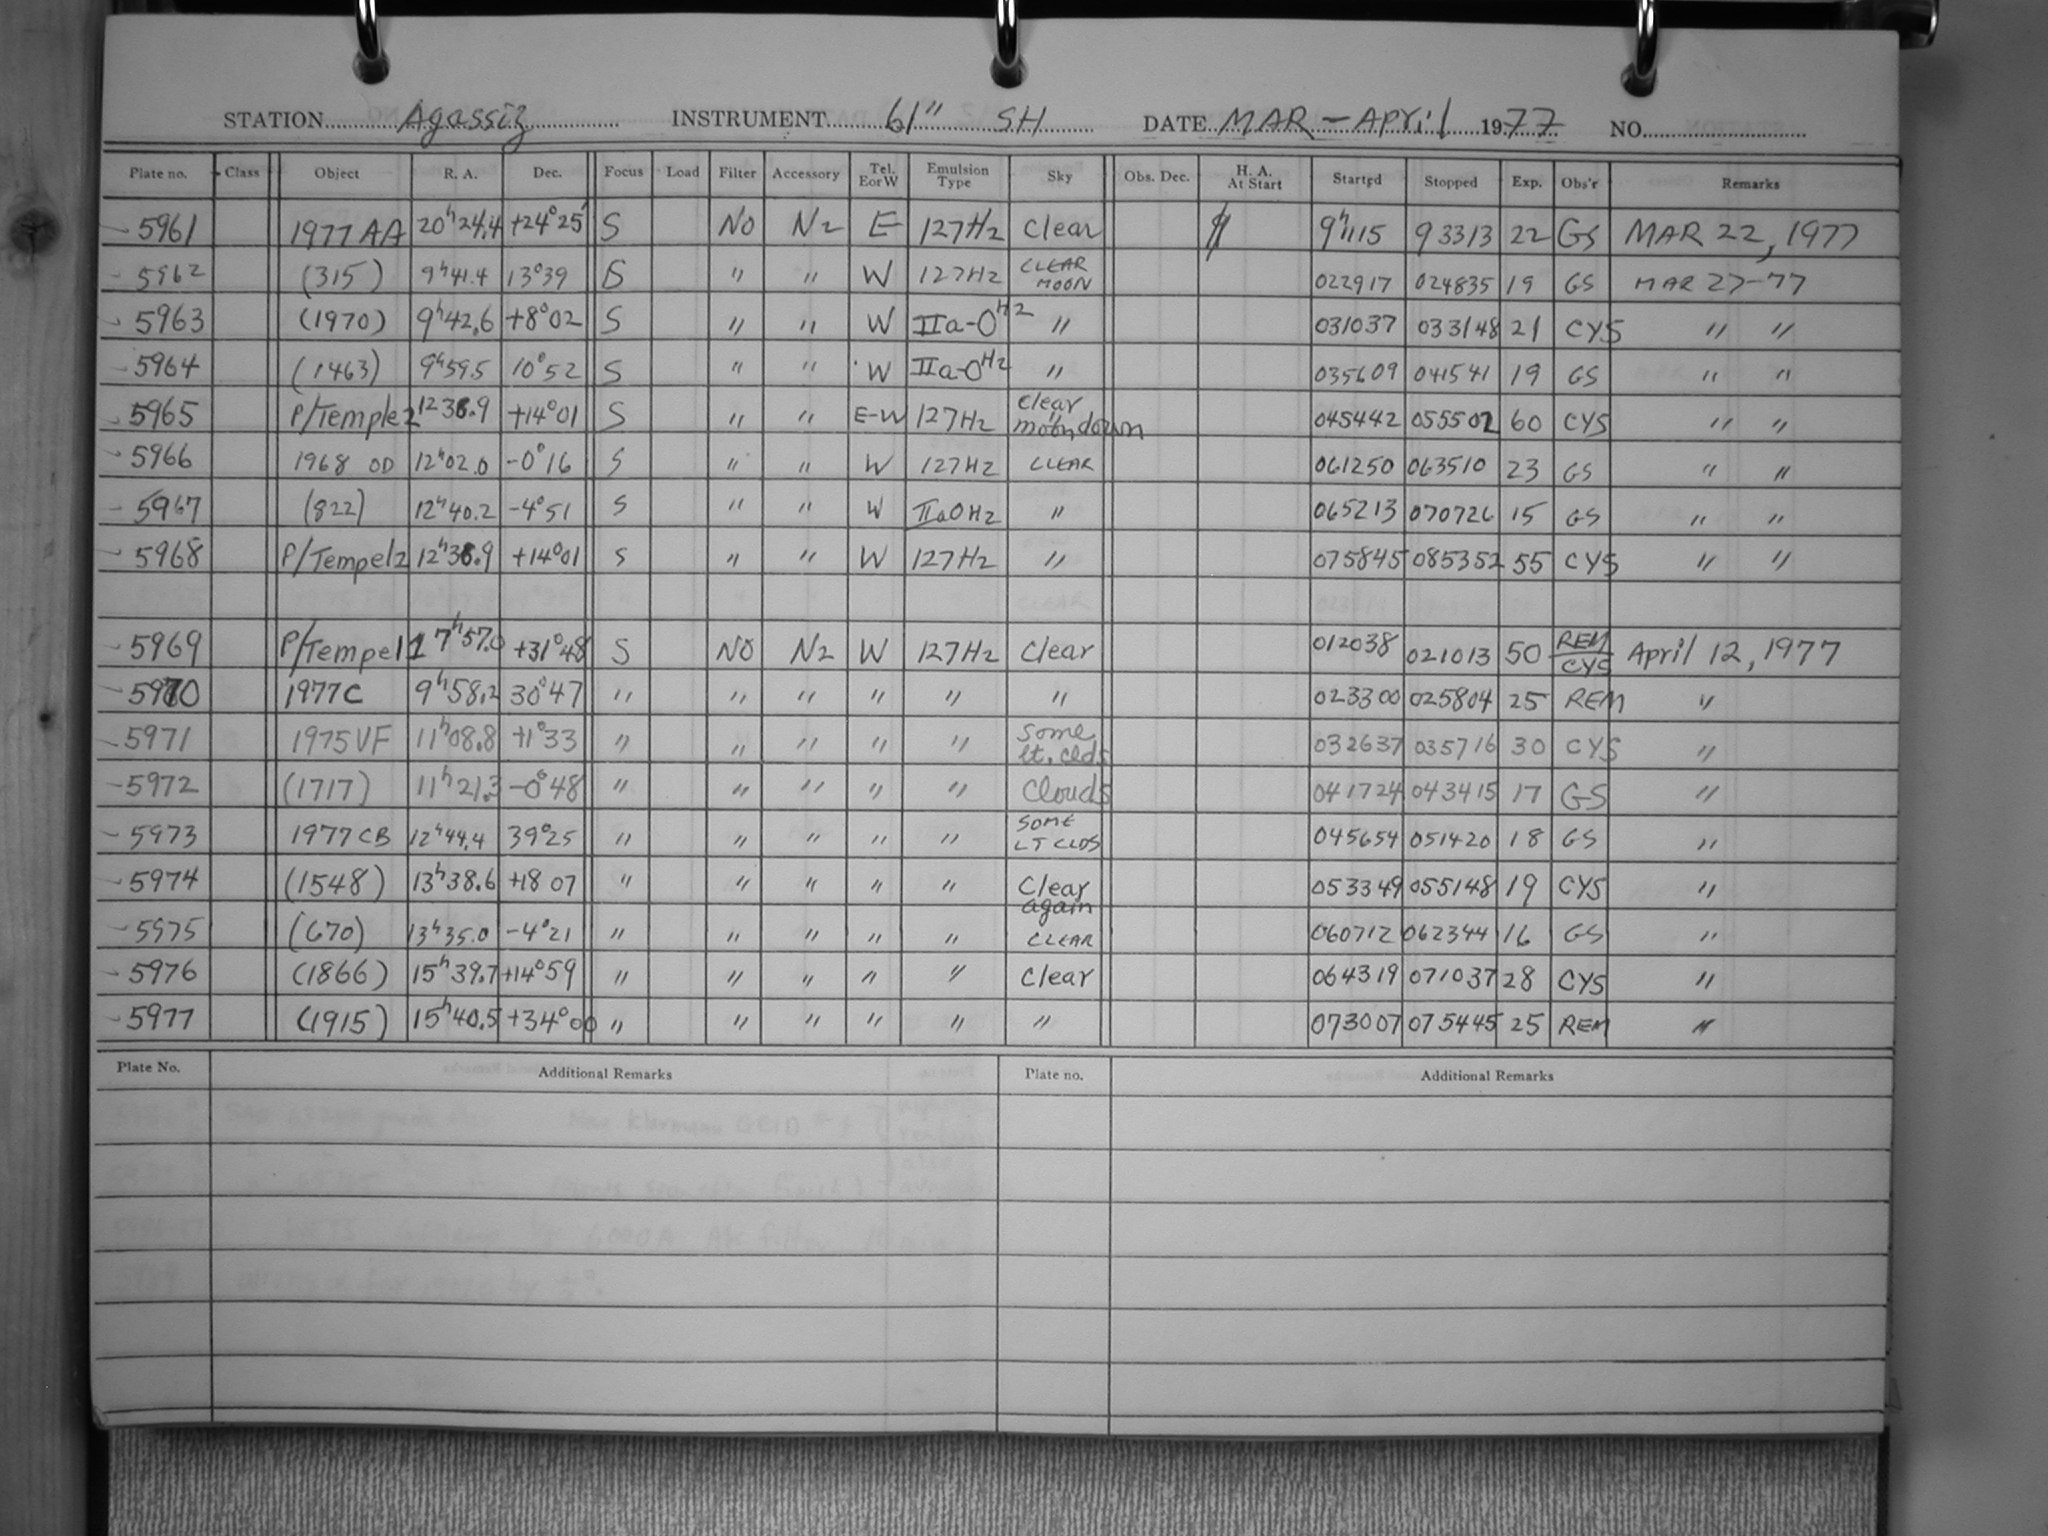 STATION Agassiz INSTRUMENT 61" SH DATE MAR - April 1977 NO.
Plate no. Class Object R. A. Dec. Focus Load Filter Accessory Tel. EorW Emulsion Type Sky Obs. Dec. H. A. At Start Started Stopped Exp. Obs'r Remarks
5961 1977 AA 20h24.4 +24°25' S NO N2 E 127Hz Clear 9h1115 93313 22 GS MAR 22, 1977
5962 (315) 9h41.4 13°39 S " " W 127Hz CLEAR MOON 022917 024835 19 GS MAR 27-77
5963 (1970) 9h42.6 +8°02 S " " W IIa-O H2 " 031037 033148 21 CYS " "
5964 (1463) 9h59.5 10°52 S " " W IIa-O H2 " 035609 041541 19 GS " "
5965 P/Temple2 1238.9 +14°01 S " " E-W 127Hz Clear moondown 045442 055502 60 CYS " "
5966 1968 OD 12h02.0 -0°16 S " " W 127Hz CLEAR 061250 063510 23 GS " "
5967 (822) 12h40.2 -4°51 S " " W IIaOHz " 065213 070726 15 GS " "
5968 P/Tempel2 12h38.9 +14°01 S " " W 127Hz " 075845 085352 55 CYS " "
5969 P/Tempel1 7h57.0 +31°48 S NO N2 W 127Hz Clear 012038 021013 50 REM/CYS April 12, 1977
5970 1977C 9h58.2 30°47 " " " " " " 023300 025804 25 REM "
5971 1975VF 11h08.8 +1°33 " " " " " Some lt. clds 032637 035716 30 CYS "
5972 (1717) 11h21.3 -0°48 " " " " " Clouds 041724 043415 17 GS "
5973 1977 CB 12h44.4 39°25 " " " " " SOME LT CLDS 045654 051420 18 GS "
5974 (1548) 13h38.6 +18 07 " " " " " Clear again 053349 055148 19 CYS "
5975 (670) 13h35.0 -4°21 " " " " " CLEAR 060712 062344 16 GS "
5976 (1866) 15h39.7 +14°59 " " " " " Clear 064319 071037 28 CYS "
5977 (1915) 15h40.5 +34°00 " " " " " " 073007 075445 25 REM "
Plate No. Additional Remarks Plate no. Additional Remarks